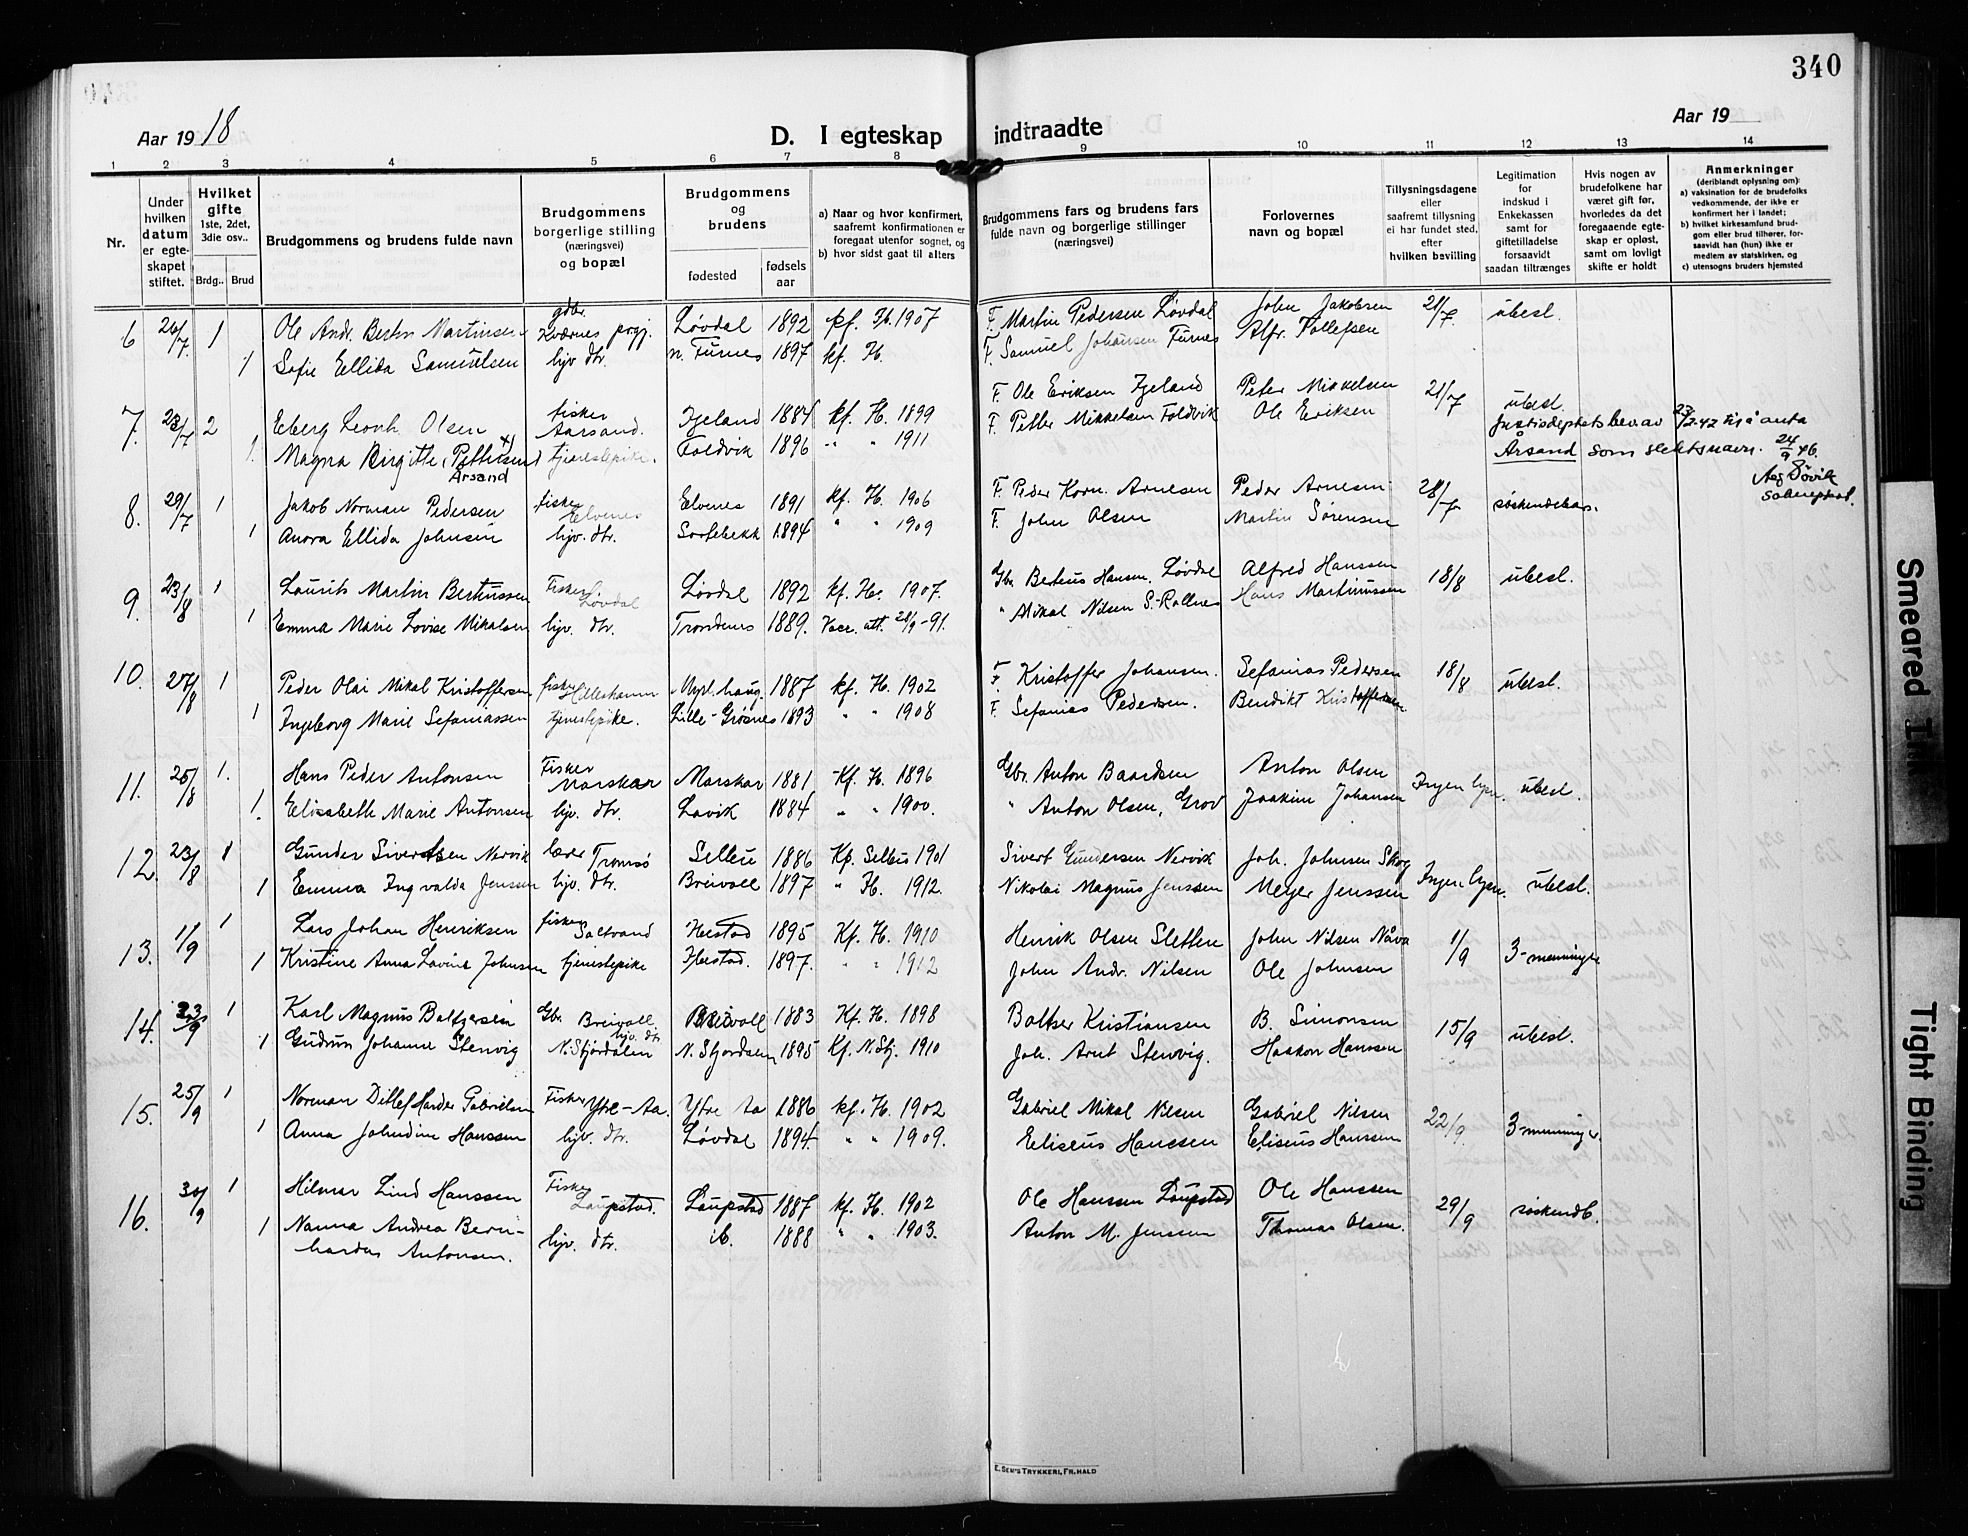 340
Aar 19 18
D. I egteskap indtraadte
Aar 19
1 2 3 4 5 6 7 8 9 10 11 12 13 14
Nr.
Under hvilken datum er egte-skapet stiftet.
Hvilket gifte
1ste, 2det, 3die osv..
Brdg.. Brud
Brudgommens og brudens fulde navn
Brudgommens borgerlige stilling (næringsvei) og bopæl
Brudgommens og brudens
fødested
fødsels aar
a) Naar og hvor konfirmert, saafremt konfirmationen er foregaat utenfor sognet, og
b) hvor sidst gaat til alters
Brudgommens fars og brudens fars fulde navn og borgerlige stillinger (næringsvei)
Forlovernes navn og bopæl
Tillysningsdagene eller saafremt tillysning ei har fundet sted, efter hvilken bevilling
Legitimation for indskud i Enkekassen samt for giftetilladelse forsaavidt saadan tiltrænges
Hvis nogen av brudefolkene har været gift før, hvorledes da det foregaaende egte-skap er opløst, samt om lovligt skifte er holdt
Anmerkninger
(deriblandt oplysning om)
a) vaksination for de brudefolks vedkommende, der ikke er konfirmert her i landet;
b) hvilket kirkesamfund brud-gom eller brud tilhører, for-saavidt han (hun) ikke er medlem av statskirken, og
c) utensogns bruders hjemsted
6 26/7 1 Ole Andr. Bertin Martinsen gbr. Kværnes prgj. Løvdal 1892 kf. Ib. 1907 F. Martin Pedersen Løvdal John Jakobsen 21/7 ubesl.
1 Sofie Ellida Samuelsen hjv. dtr. n. Furnes 1897 kf. H. F. Samuel Johansen Furnes Alfr. Tollefsen
7. 28/7 2 Edberg Leonh. Olsen fisker Aarsand. Igeland 1884 kf. H. 1899 F. Ole Eriksen Igeland Peter Mikkelsen 21/7 ubesl.
1. Magna Birgitte (Pettersen) x) Årsand tjenestepike. Foldvik 1896 " " 1911 F. Petter Mikkelsen Foldvik Ole Eriksen
Justisdeptets bev. av 23/2-42 til å anta
Årsand som slektsnavn. 24/9 46.
Aag Søvik
sokneprest.
8. 29/7 1 Jakob Norman Pedersen fisker Elvenes Elvenes 1891 kf. H. 1906 F. Peder Korn. Arnesen Peder Arnesen 28/7 søskendebar.
1 Anora Ellida Johnsen hjv. dtr. Sortebekk 1894 " " 1909 F. John Olsen Martin Sørensen
9. 23/8 1 Laurits Martin Berteussen Fisker Løvdal Løvdal 1892 kf. H. 1907. Gbr. Berteus Hansen, Løvdal Alfred Hanssen 18/8 ubesl.
1 Emma Marie Lovise Mikalsen hjv. dtr. Trondenes 1889. Vacc. att. 28/9-91. " Mikal Nilsen S.-Rollnes Hans Martinussen
10. 27/8 1 Peder Olai Mikal Kristoffersen fisker Hilleshamn Myrl.haug 1887 kf. H. 1902 F. Kristoffer Johansen. Sefanias Pedersen 18/8 ubesl.
1 Ingeborg Marie Sefaniassen tjenestepike. Lille-Grøsnes 1893 " " 1908 F. Sefanias Pedersen. Bendikt Kristoffersen
11. 25/8 1. Hans Peder Antonsen Fisker Marskar Marskar 1881 Kf. H. 1896 Gbr. Anton Baardsen Anton Olsen Ingen lysn. ubesl.
1. Elisabeth Marie Antonsen hjv. dtr. Lavik 1884 " " 1900. " Anton Olsen, Grov Joakim Johansen
12. 23/8 1 Gunder Sivertsen Nervik lærer Tromsø Selleu 1886 Kf. Selleu 1901 Sivert Gundersen Nervik Joh. Johnsen Skog Ingen lysn. ubesl.
1 Emma Ingvalda Jenssen hjv. dtr. Breivoll 1897 " H. 1912. Nikolai Magnus Jenssen Meyer Jenssen
13. 1/9 1 Lars Johan Henriksen fisker Saltvand Hestad 1895 Kf. H. 1910 Henrik Olsen Sletten John Nilsen Nåva 1/9 3-menninge
1 Kristine Anna Lovise Johnsen tjenestepike Ibestad. 1897. " " 1912 John Andr. Nilsen Ole Johnsen
14. 23/9 1 Karl Magnus Baltzersen Gbr. Breivoll. Breivoll 1883 Kf. H. 1898 Baltser Kristiansen B. Simonsen 15/9 ubesl.
1 Gudrun Johanne Stenvig hjv. dtr N. Stjørdalen N. Stjørdalen 1895 Kf. N. Stj. 1910 Joh. Arnt Stenvig. Haakon Hanssen
15. 25/9 1 Norman Ditlef Harder Gabrielsen Fisker Ytre-Aa. Ytre Aa 1886 kf. H. 1902 Gabriel Mikal Nilsen Gabriel Nilsen 22/9. 3-menninger.
1 Anna Johndine Hanssen hjv. dtr. Løvdal 1894. " " 1909. Eliseus Hanssen Eliseus Hanssen
16. 30/9 1 Hilmar Lind Hanssen Fisker Laupstad. Laupstad 1887 kf. H. 1902 Ole Hanssen Laupstad Ole Hanssen 29/9 søskendb.
1 Nanna Andrea Bern-hardas Antonsen. hjv. dtr. ib. 1888 " " 1903. Anton M. Jenssen Thomas Olsen.
E. SEM'S TRYKKERI, FR.HALD
Smeared Ink
Tight Binding